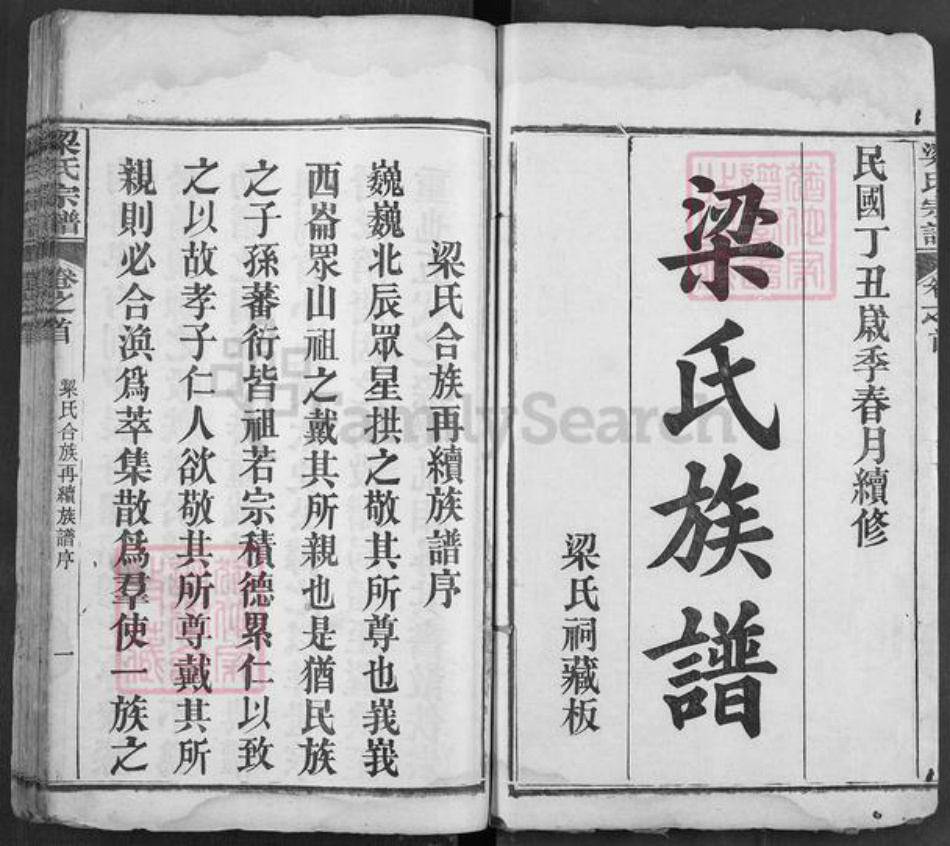 民國丁丑歲季春月續修
梁氏族譜
梁氏祠藏板
梁氏合族再續族譜序
巍巍北辰眾星拱之敬其所尊也峩峩
西崙眾山祖之戴其所親也是猶民族
之子孫蕃衍皆祖若宗積德累仁以致
之以故孝子仁人欲敬其所尊戴其所
親則必合渙爲萃集散爲羣使一族之
梁氏宗譜
卷之首
梁氏合族再續族譜序
一
FamilySearch